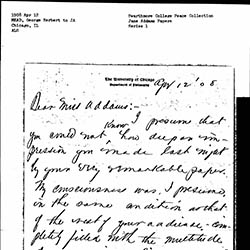 1908 Apr 12
MEAD, George Herbert to JA
Chicago, IL
ALS
Swarthmore College Peace Collection
Jane Addams Papers
Series 1
The University of Chicago
Department of Philosophy
Apr 12 '08
Dear Miss Addams:
I presume that
know
you could not how deep an im-
pression you made last night
by your very remarkable paper.
My consciousness was, I presume,
in the same condition as that
of the rest of your audience - com-
pletely filled with the multitude